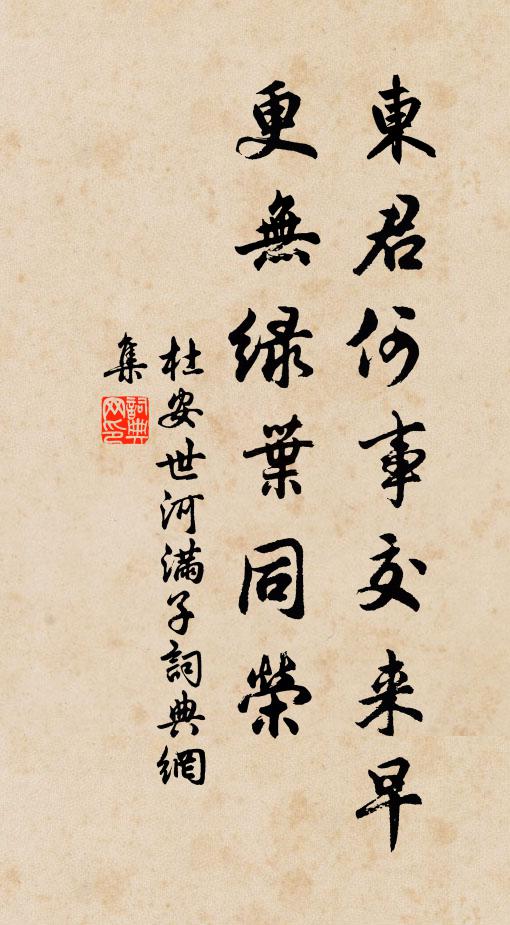 東君何事交来早
更無緑葉同榮
杜安世河滿子詞典網
集
詞典網印